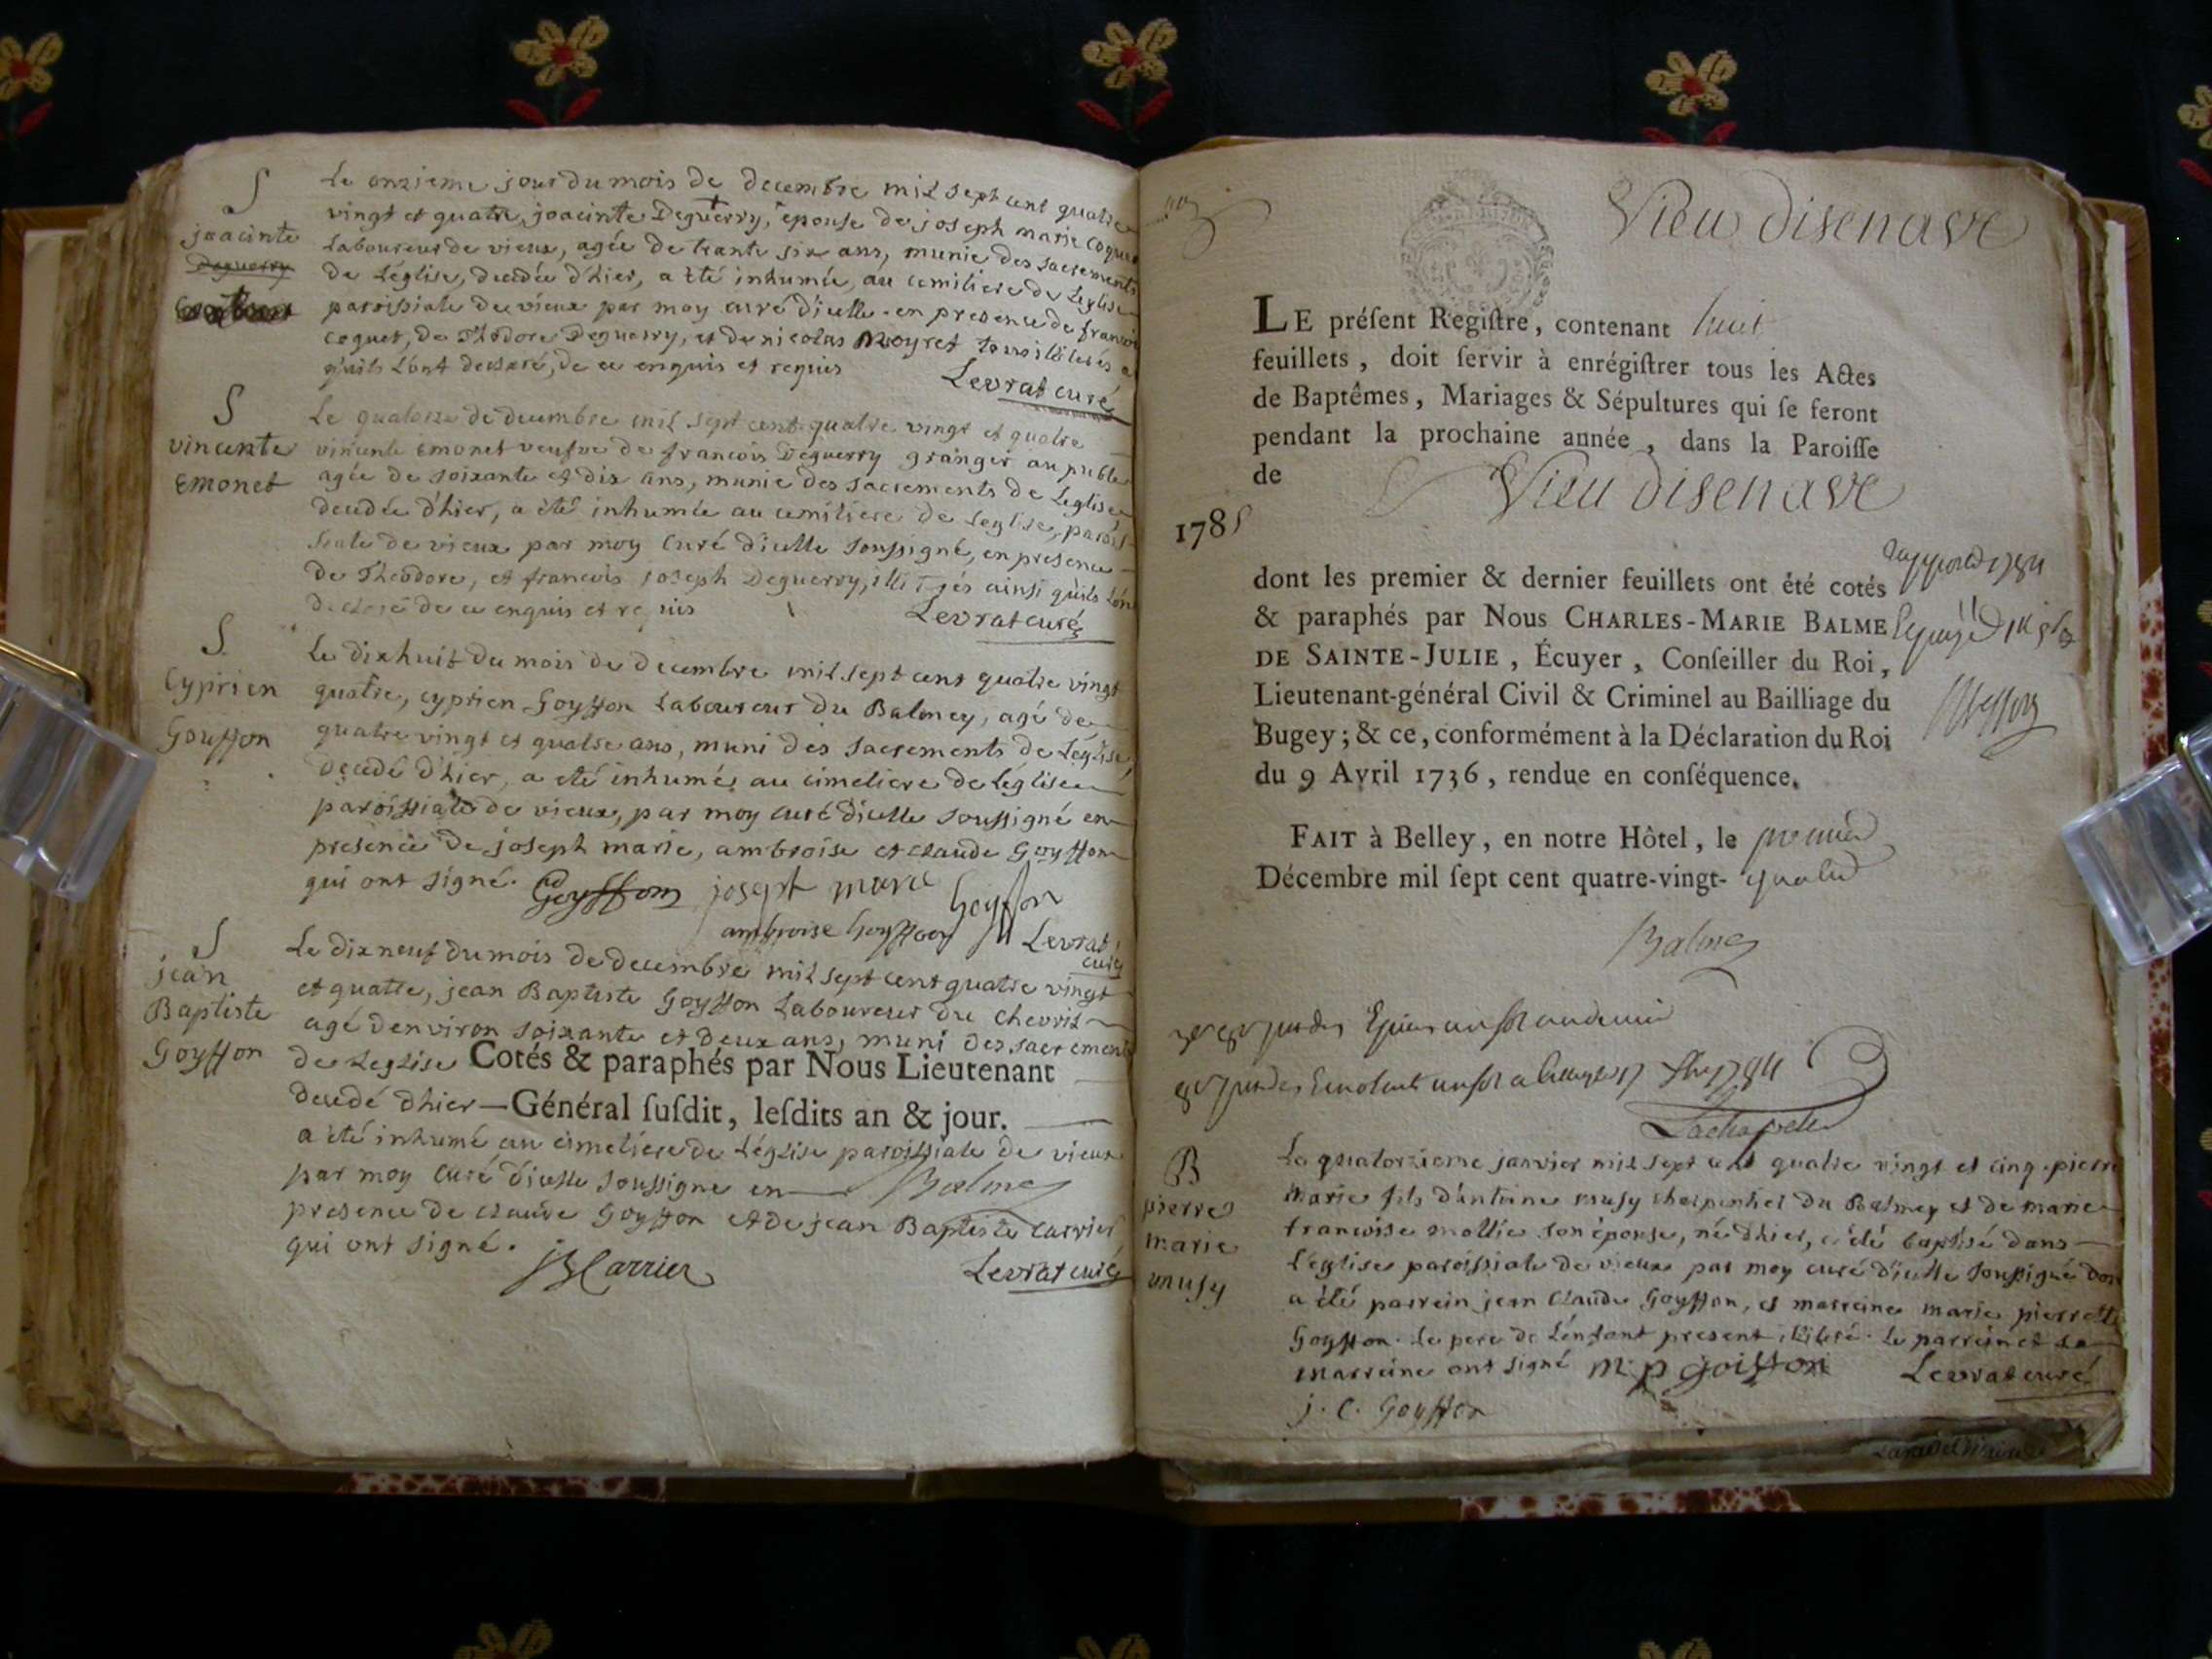 S
joacinte
Deguerry
Le onzieme jour du mois de decembre mil sept cent quatre
vingt et quatre, joacinte Deguerry, epouse de joseph marie coquet
Laboureur de vieux, agée de trante six ans, munie des sacrements
de Léglise, decedée d'hier, a été inhumée au cemitiere de Leglise
paroissiale de vieux par moy curé d'icelle en presence de francois
coquet, de Théodore Deguerry, et de nicolas Moyret tous illiterés
qu'ils L'ont declaré, de ce enquis et requis
Levrat curé
S
vincente
Emonet
Le quatorze de decembre mil sept cent quatre vingt et quatre
vincente Emonet veufve de francois Deguerry granger au
agée de soixante et dix ans, munie des sacrements de Leglise
decedée d'hier, a été inhumée au cemitiere de Leglise, parois-
siale de vieux par moy Curé d'icelle soussigné, en presence
de Théodore, et francois joseph Deguerry, illiterés ainsi qu'ils L'ont
declaré de ce enquis et requis
Levrat curé
S
Cyprien
Gouffon
Le dixhuit du mois de decembre mil sept cent quatre vingt
quatre, cyprien Goyffon Laboureur du Balmey, agé de
quatre vingt et quatre ans, muni des sacrements de Léglise,
decedé d'hier, a été inhumé au cimetiere de Léglise
paroissiale de vieux, par moy curé d'icelle soussigné en
presence de joseph marie, ambroise et claude Goyffon
qui ont signé. Goyffon joseph marie Goyffon
ambroise Goyffon Levrat
curé
S
jean
Baptiste
Goyffon
Le dixneuf du mois de decembre mil sept cent quatre vingt
et quatre, jean Baptiste Goyffon Laboureur du chevril
agé denviron soixante et deux ans, muni des sacrements
de Leglise Cotés & paraphés par Nous Lieutenant
decedé d'hier — Général ſuſdit, leſdits an & jour.
a été inhumé au cimetiere de Léglise paroissiale de vieux
par moy curé d'icelle soussigné en Balme
presence de claude Goyffon et de jean Baptiste Carrier,
qui ont signé.
JB Carrier Levrat curé
Vieu disenave
LE préſent Regiſtre, contenant huit
feuillets, doit ſervir à enrégiſtrer tous les Actes
de Baptêmes, Mariages & Sépultures qui ſe feront
pendant la prochaine année, dans la Paroiſſe
de Vieu disenave
1785
dont les premier & dernier feuillets ont été cotés
& paraphés par Nous CHARLES-MARIE BALME
DE SAINTE-JULIE, Écuyer, Conſeiller du Roi,
Lieutenant-général Civil & Criminel au Bailliage du
Bugey; & ce, conformément à la Déclaration du Roi
du 9 Avril 1736, rendue en conſéquence.
FAIT à Belley, en notre Hôtel, le premier
Décembre mil ſept cent quatre-vingt- quatre
Balme
Lachapelle
B
pierre
marie
musy
Le quatorzieme janvier mil sept cent quatre vingt et cinq pierre
marie fils d'antoine musy cherpentier du Balmey et de marie
francoise mollie son épouse, né d'hier, a été baptisé dans
l'eglise paroissiale de vieux par moy curé d'icelle soussigné dont
a été parrein jean claude Goyffon, et marreine marie pierrette
Goyffon. Le pere de L'enfant present illiteré. Le parrein et La
marreine ont signé m. p goiffon Levrat curé
j. C. Goyffon